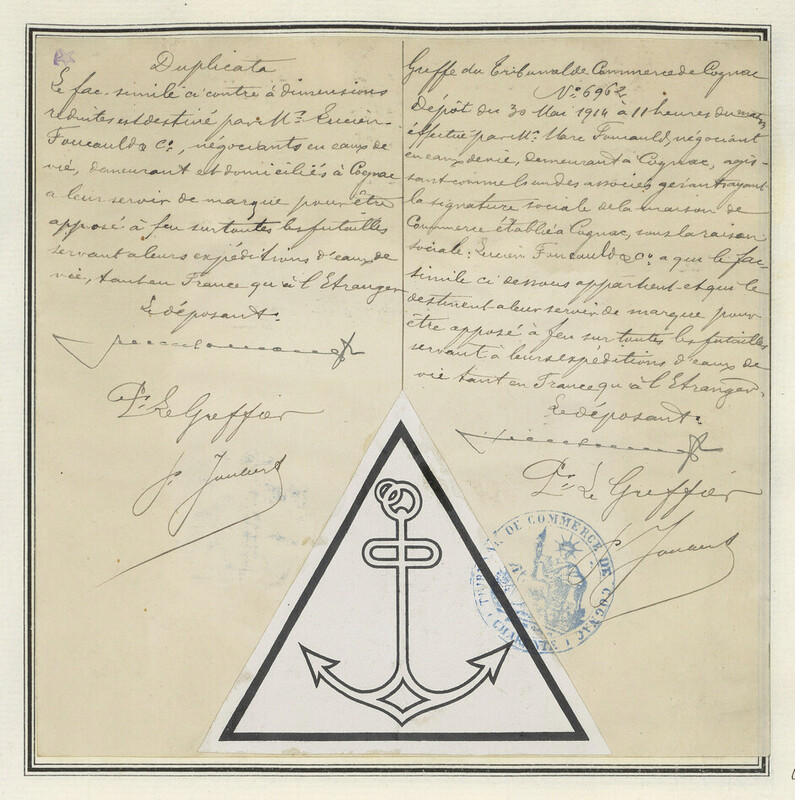 Duplicata
Le fac-simile ci contre à dimensions
réduites est destiné par Mr. Lucien-
Foucauld & Co, négociants en eaux de
vie, demeurant et domiciliés à Cognac
a leur servir de marque pour être
apposé à feu sur toutes les futailles
servant à leurs expéditions d'eaux de
vie, tant en France qu'à l'Etranger
Le déposant.
Pr. Le Greffier
Greffe du Tribunal de Commerce de Cognac
No 6962
Dépôt du 30 Mai 1914 à 11 heures du matin
effectué par Mr. Marc Foucauld, négociant
en eaux de vie, demeurant à Cognac, agis-
sant comme l'un des associés gérant ayant
la signature sociale de la maison de
Commerce établie à Cognac, sous la raison
sociale: Lucien Foucauld & Co. a que le fac-
simile ci dessous appartient et que le
destinent a leur servir de marque pour
être apposé à feu sur toutes les futailles
servant à leurs expéditions d'eaux de
vie tant en France qu'à l'Etranger.
Le déposant.
Pr. Le Greffier
TRIBUNAL DE COMMERCE DE COGNAC
CHARENTE